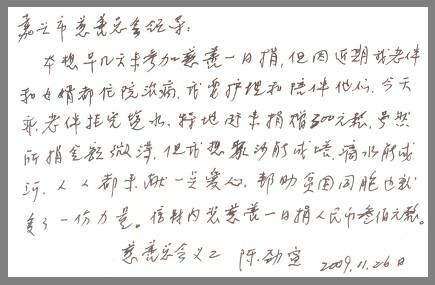 嘉兴市慈善总会领导:
本想早几天来参加慈善一日捐,但因近期我老伴
和女婿都住院治病,我要护理和陪伴他们,今天
乘老伴挂完盐水,特地赶来捐赠300元整,虽然
所捐金额微薄,但我想聚沙能成塔,滴水能成
河,人人都来献一点爱心,帮助贫困同胞也就
多了一份力量。信封内装慈善一日捐人民币叁佰元整。
慈善总会义工 陈
2009.11.26日